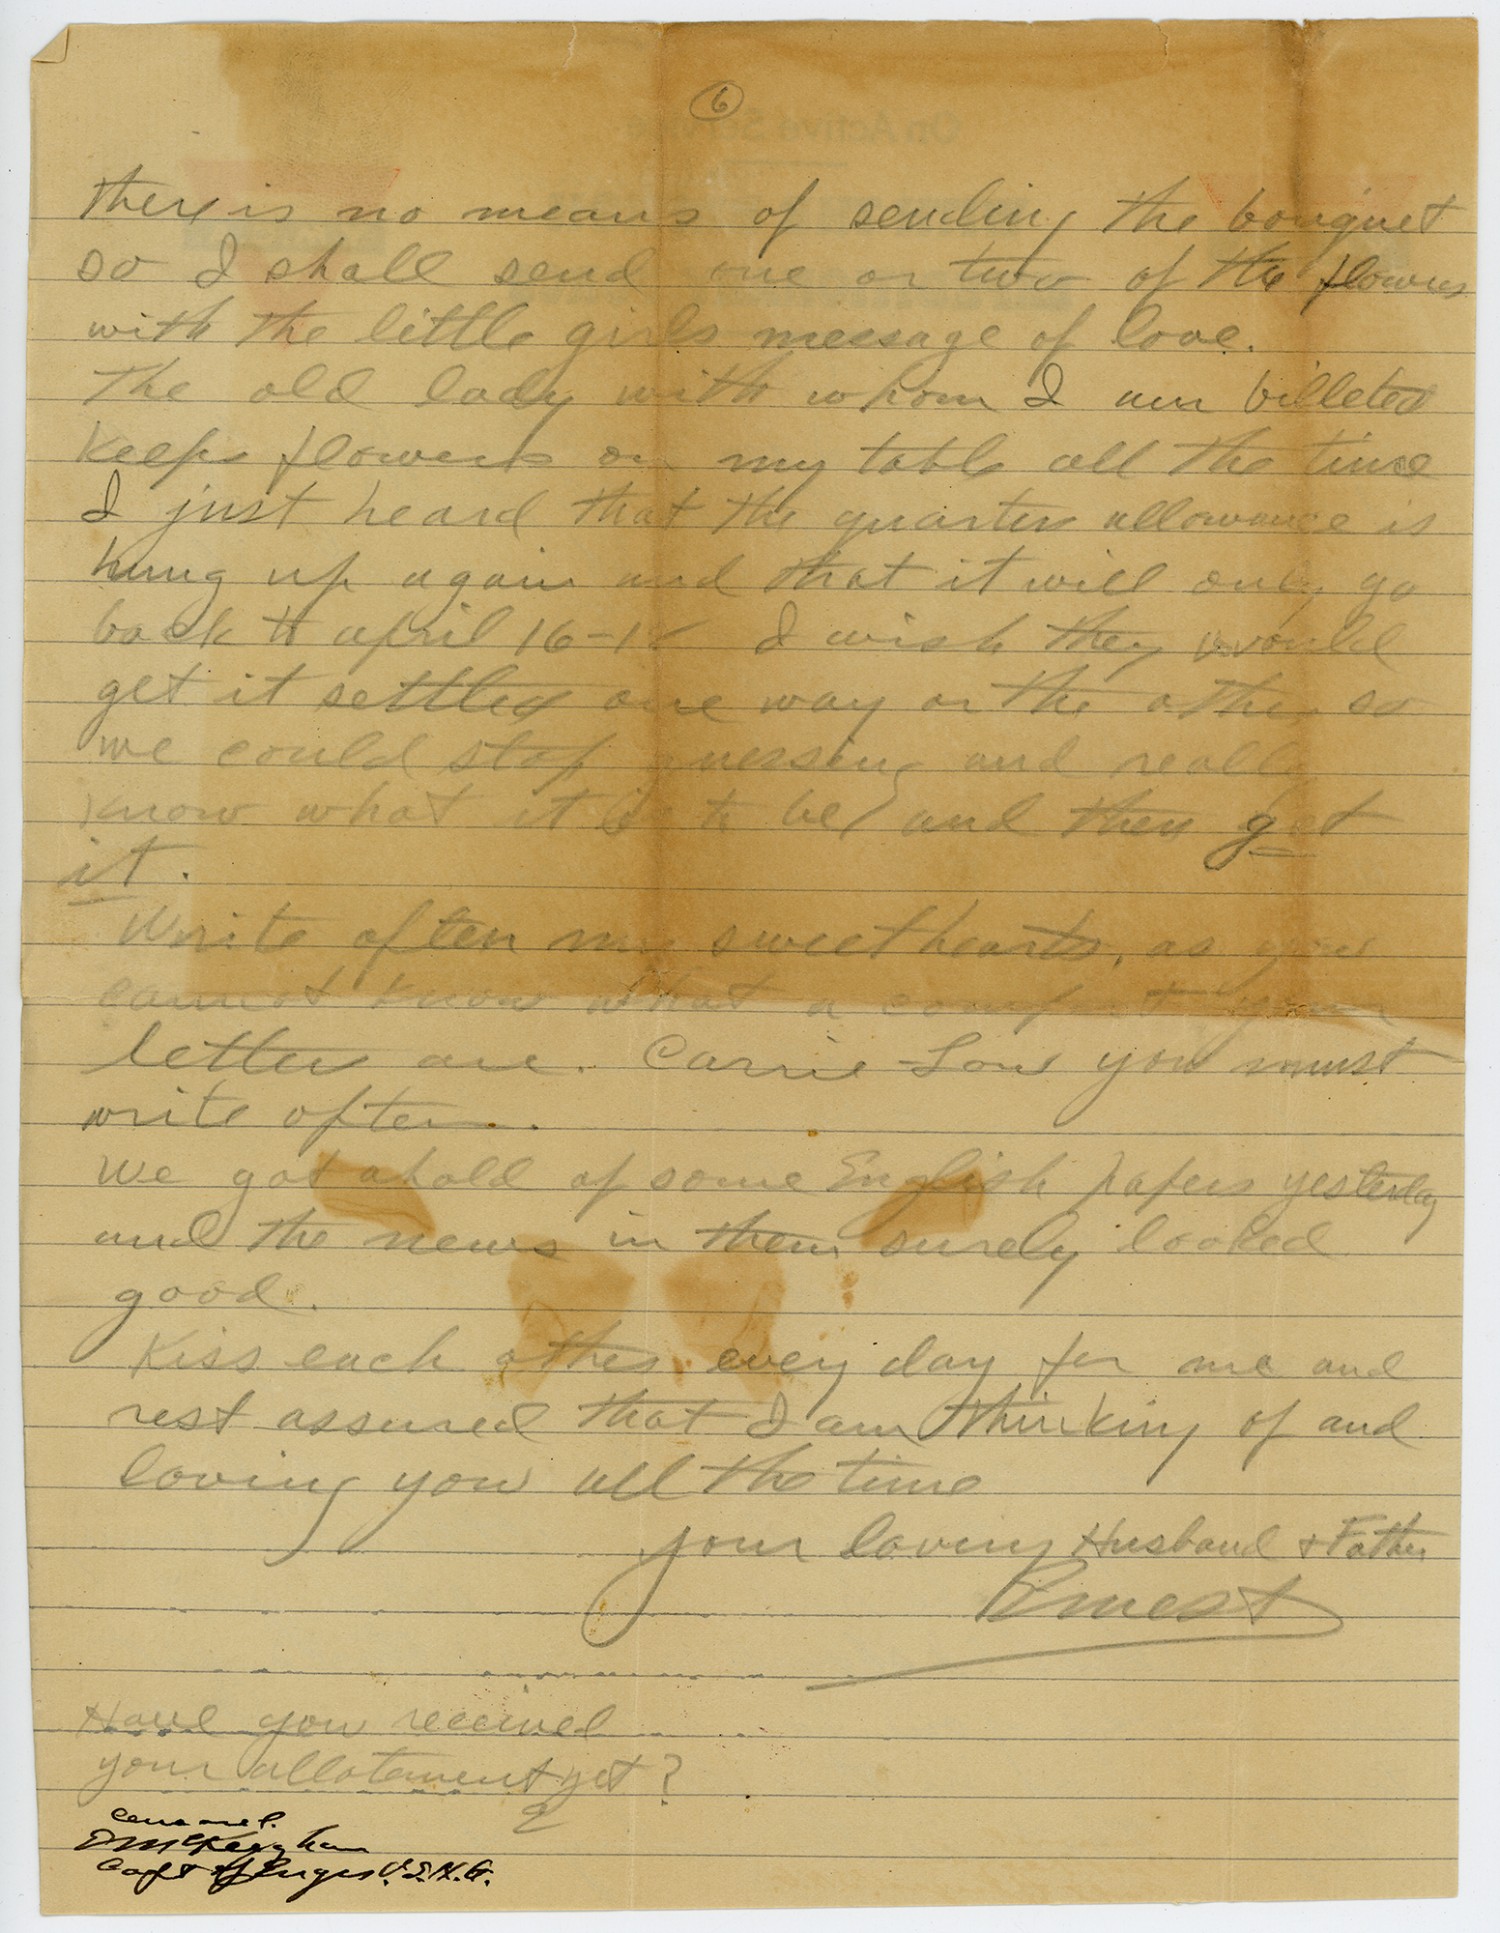 6
there is no means of sending the bouquet
so I shall send one or two of the flowers
with the little girls message of love.
The old lady with whom I am billeted
keeps flowers on my table all the time
I just heard that the quarters allowance is
hung up again and that it will only go
back to april 16-18 I wish they would
get it settled one way or the other so
we could stop guessing and really
know what it is to be, and then get
it.
Write often my sweethearts, as you
cannot know what a comfort your
letters are. Carrie-Lou you must
write often.
We got ahold of some English papers yesterday
and the news in them surely looked
good.
Kiss each other every day for me and
rest assured that I am thinking of and
loving you all the time
your loving Husband & Father
Ernest
Have you received
your allotement yet?
Censored.
Capt of Engrs U.S.N.G.
On Active Service